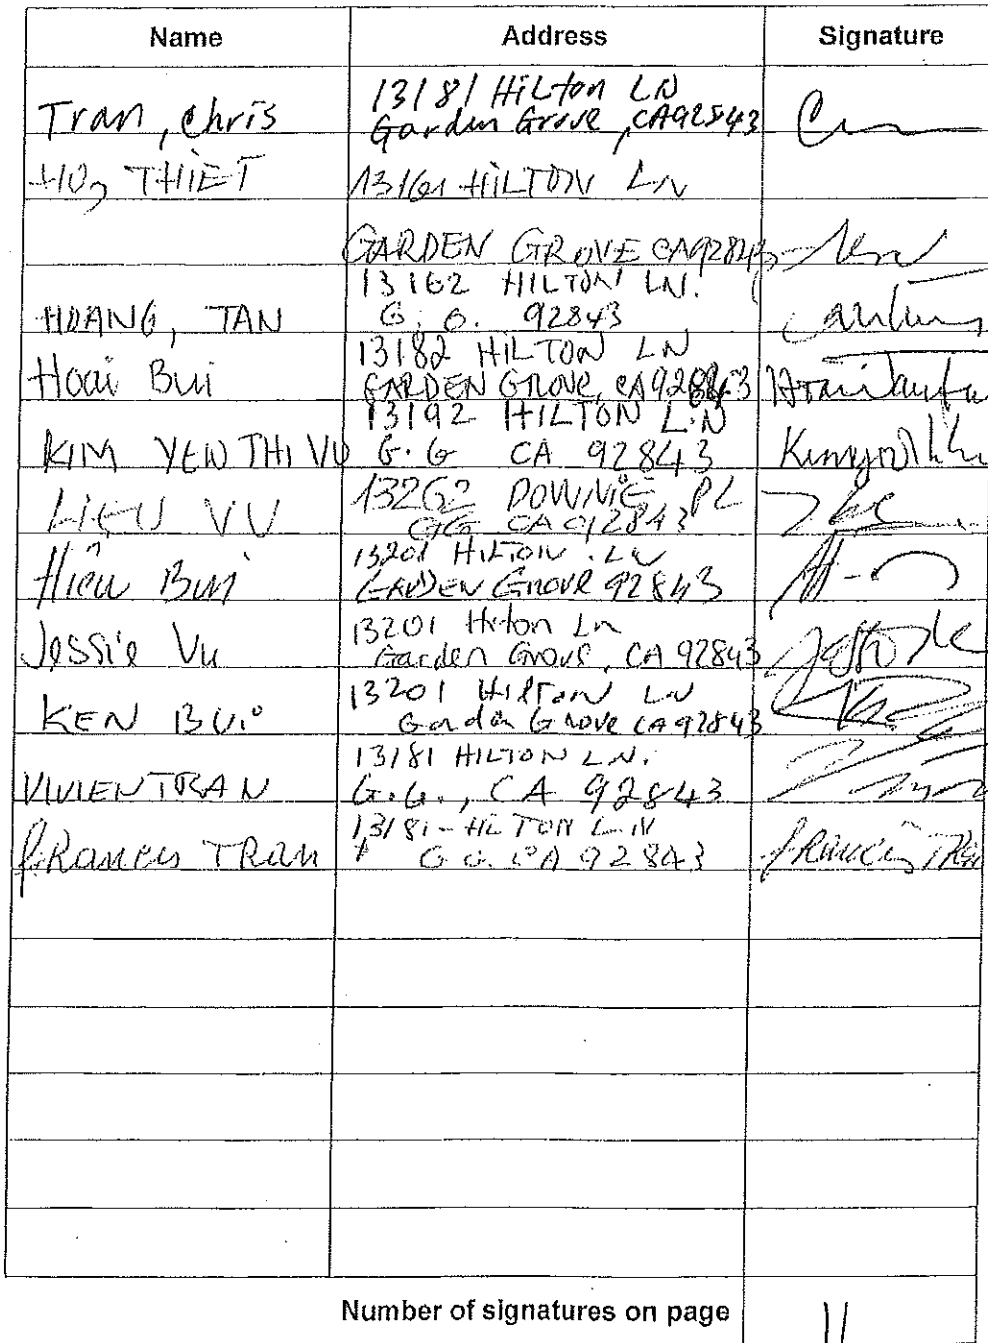 Name Address Signature
Tran, Chris 13181 Hilton LN
Garden Grove, CA 92543
HO, THIET 13161 HILTON LN
GARDEN GROVE CA 92843
HOANG, TAN 13162 HILTON LN.
G. G. 92843
Hoai Bui 13182 HILTON LN
GARDEN GROVE, CA 92843
KIM YEN THI VU 13192 HILTON LN
G.G CA 92843
LIEU VU 13262 DOWNIE PL
GG CA 92843
Hiêu Bui 13201 HILTON LN
GARDEN GROVE 92843
Jessie Vu 13201 Hilton Ln
Garden Grove, CA 92843
KEN BUI 13201 Hilton LN
Garden Grove CA 92843
VIVIEN TRAN 13181 HILTON LN.
G.G., CA 92843
FRANCIS TRAN 13181 - HILTON LN
G G. CA 92843 FRANCIS TRAN
Number of signatures on page 11